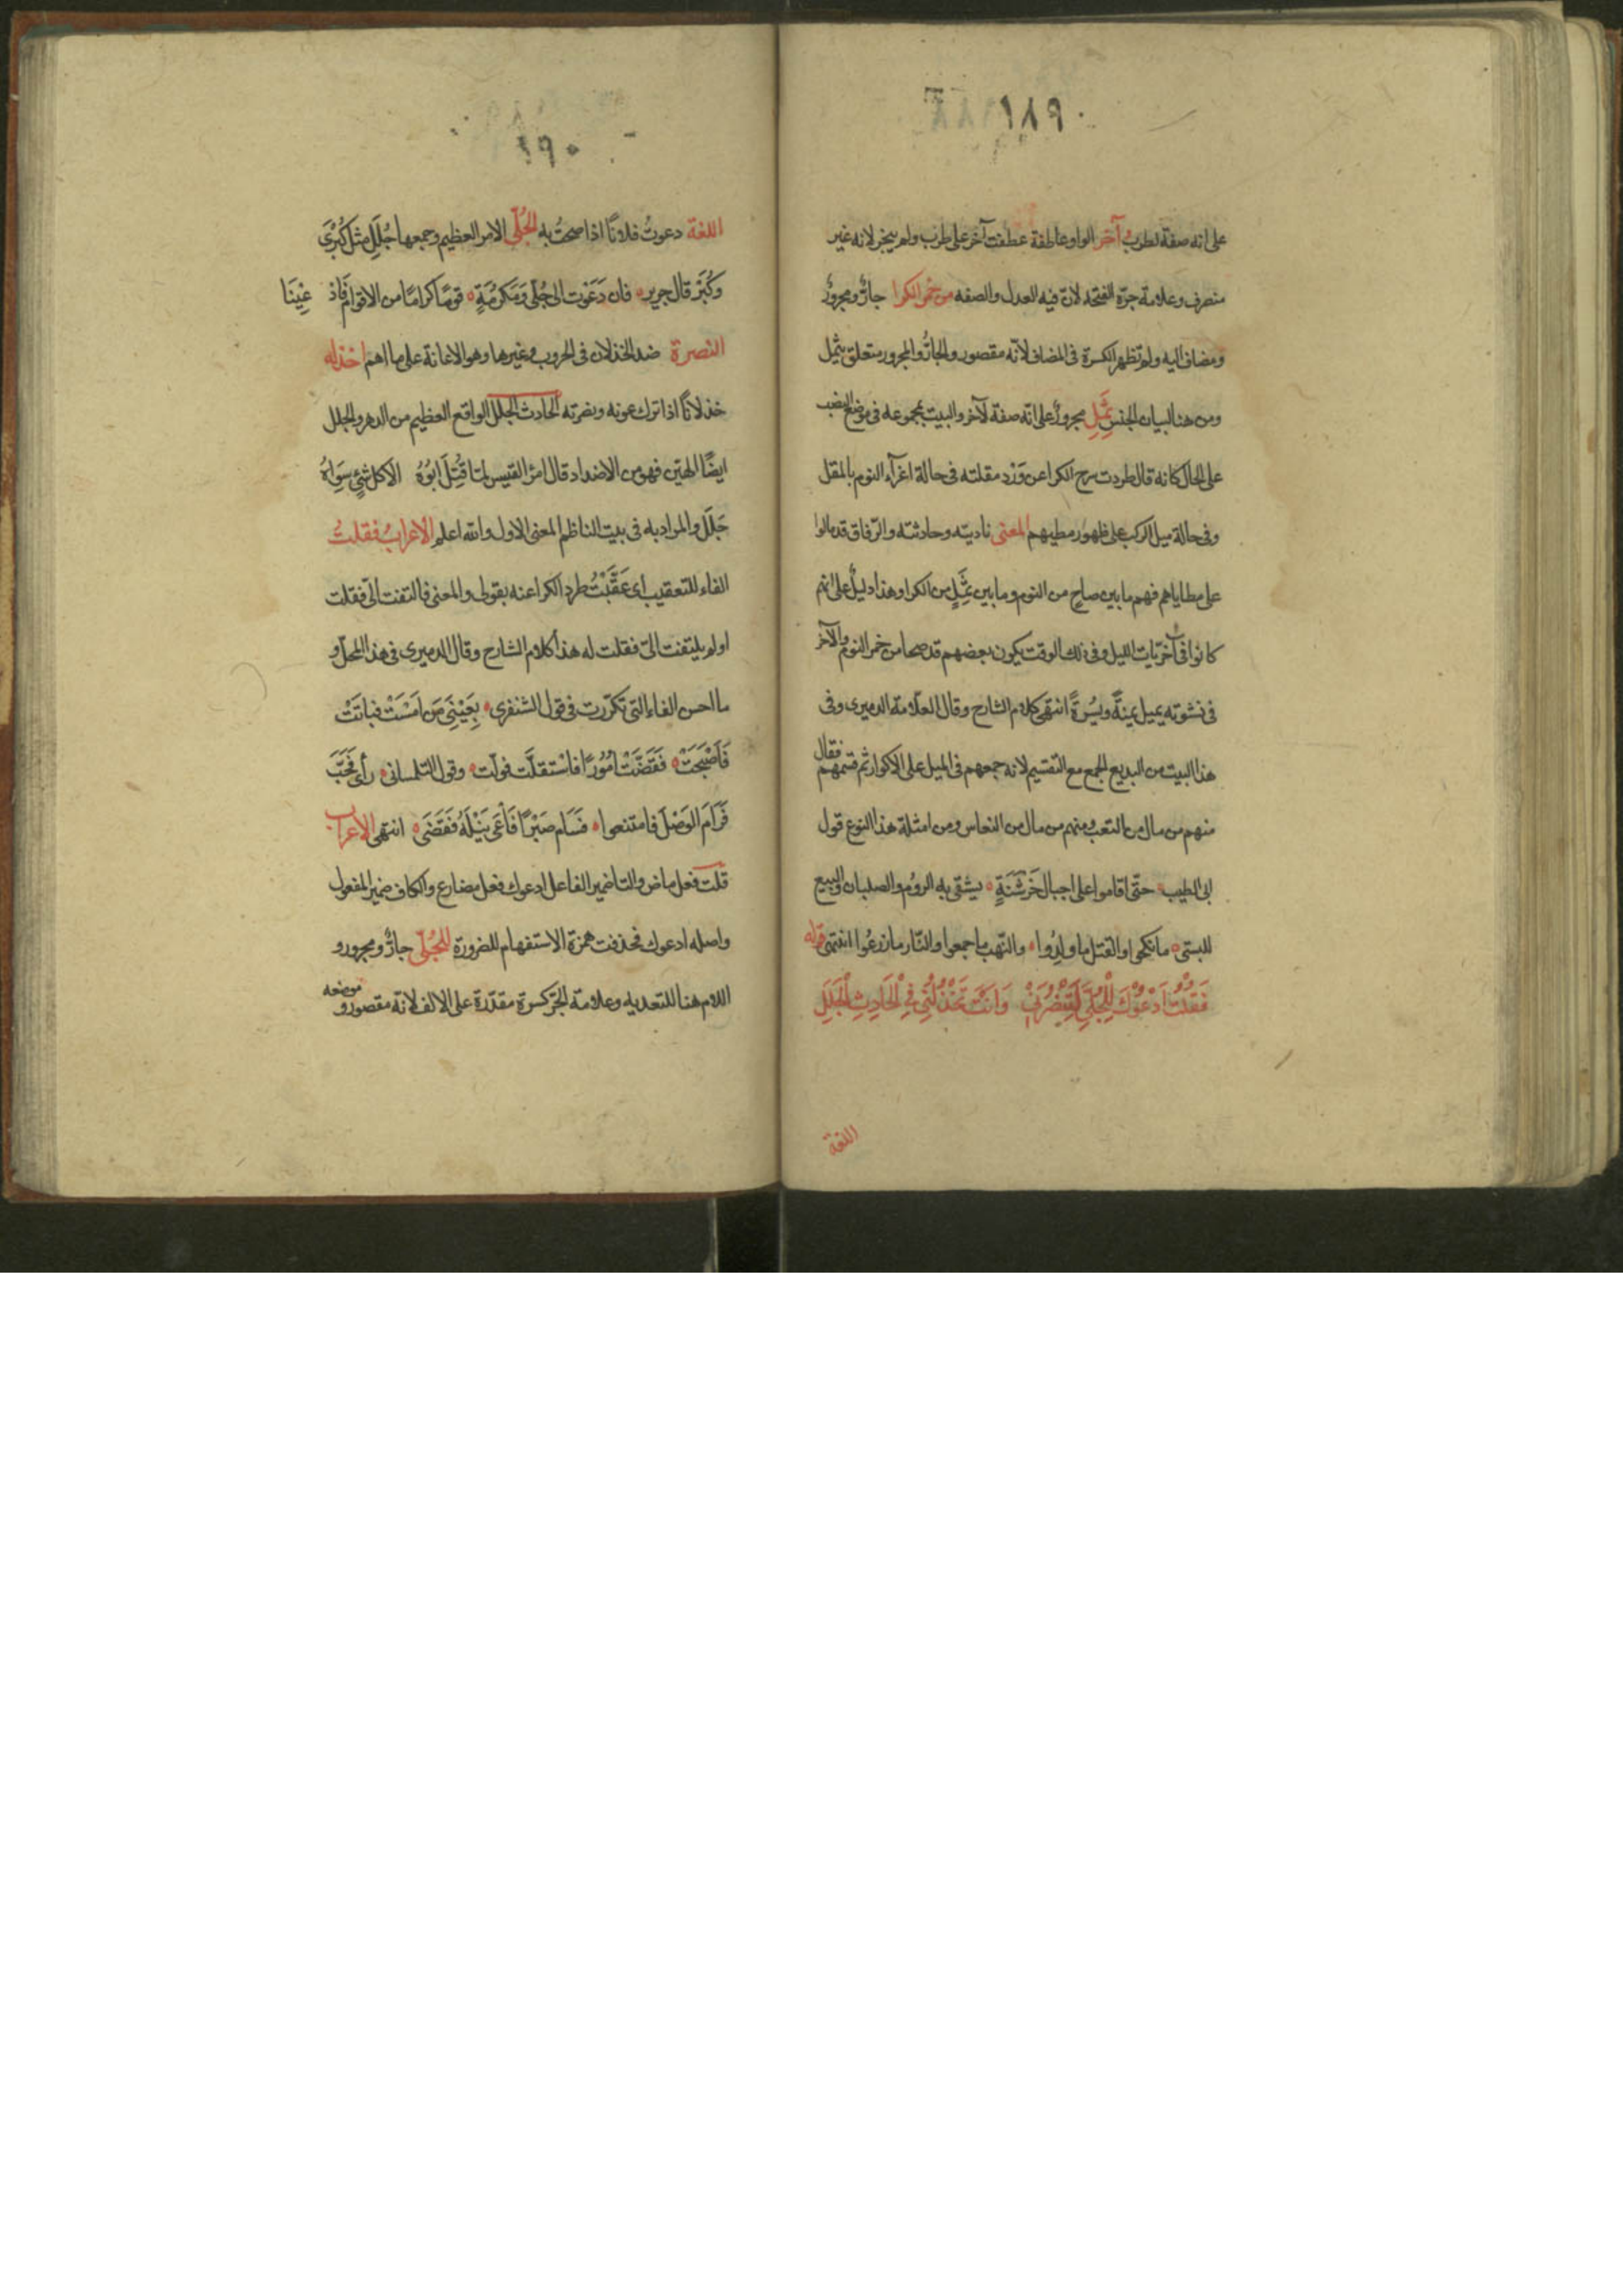 ١٨٩
على انه صفة لطرب وآخر الواو عاطفة عطفت آخر على طرب ولم يجز لانه غير
منصرف وعلامة جرّه الفتحه لانّ فيه العدل والصفه من خمر الكرا جارٌ ومجرورٌ
ومضاف اليه ولم تظهر الكسرة فى المضاف لانّه مقصور والجارُّ والمجرور متعلق بثمل
ومن هنا لبيان الجنس ثَمِلِ مجرورٌ على انّه صفة لآخر والبيت بمجموعه فى موضع النصب
على الحال كانه قال طردت سرح الكرا عن وَرْد مقلته فى حالة اغرآء النوم بالمقل
وفى حالة ميل الركب على ظهور مطيهم المعنى ناديته وحادثته والرّفاق قد مالوا
على مطاياهم فهم ما بين صاحٍ من النوم وما بين ثَمِلٍ من الكرا وهذا دليلٌ على انهم
كانوا فى اخريّات الليل وفى ذلك الوقت يكون بعضهم قد صحا من خمر النوم والآخر
فى نشوته يميل يمينةً ويُسْرةً انتهى كلام الشارح وقال العلّامة الدميرى وفى
هذا البيت من البديع الجمع مع التقسيم لانه جمعهم فى الميل على الاكوار ثم قسمهم فقال
منهم من مال من التعب ومنهم من مال من النعاس ومن امثلة هذا النوع قول
ابى الطيب حتّى اقاموا على اجبال خَرْشَنَةٍ يشقى به الرومُ والصلبان والبيع
للسبى ما نكحوا والقتل ما ولدُوا والنّهب ما جمعوا والنّار ما زرعُوا انتهى قوله
فَقُلْتُ اَدْعُوْكَ لِلْجُلَّى لِتَنْصُرَنِىْ وَاَنْتَ تَخْذُلُنِى فِى الْحَادِثِ الْجَلَلِ
اللغة
١٩٠
اللغة دعوتُ فلانًا اذا صحتُ به الجُلّى الامر العظيم وجمعها جُلَلٍ مثل كُبْرَى
وكُبَرْ قال جرير فان دَعَوْت الى جُلّى وَمَكْرُمَةٍ قومًا كرامًا من الاقوام فادْعِيْنَا
النصرة ضد الخذلان فى الحروب وغيرها وهو الاعانة على ما اهم خذله
خذلانًا اذا ترك عونه ونصرته الحادث الجلل الواقع العظيم من الدهر والجلل
ايضًا الهيّن فهو من الاضداد قال امرُ القيس لمّا قُتِلَ ابُوْهُ الا كل شئٍ سِوَاهُ
جَلَلْ والمراد به فى بيت الناظم المعنى الاول والله اعلم الاعراب فقلتُ
الفاء للتعقيب اى عَقَّبْتُ طرد الكرا عنه بقولى والمعنى فالتفت الىّ فقلت
او لم يلتفت الىّ فقلت له هذا كلام الشارح وقال الدميرى فى هذا المحلّ و
ما احسن الفاء التى تكرّرت فى قول الشنفرى بِعَيْنِىَ مَن اَمْسَتْ فباتَتْ
فَاَصْبَحَتْ فَقَضَّتْ اُمُوْرًا فاسْتقلَّت فولّت وقول التلمسانى رأى فَحَبَّ
فَرَامَ الوَصْلَ فامتنعوا فسَام صَبْرًا فَاَعْىَ نَيْلَهُ فَقَضَى انتهى الاعراب
قلت فعل ماض والتا ضمير الفاعل ادعوك فعل مضارع والكاف ضمير المفعول
واصله ادعوك فحذفت همزة الاستفهام للضرورة للجُلّى جارٌ ومجرور و
اللام هنا للتعديه وعلامة الجرّ كسرة مقدّرة على الالف لانّه مقصور و موضعه